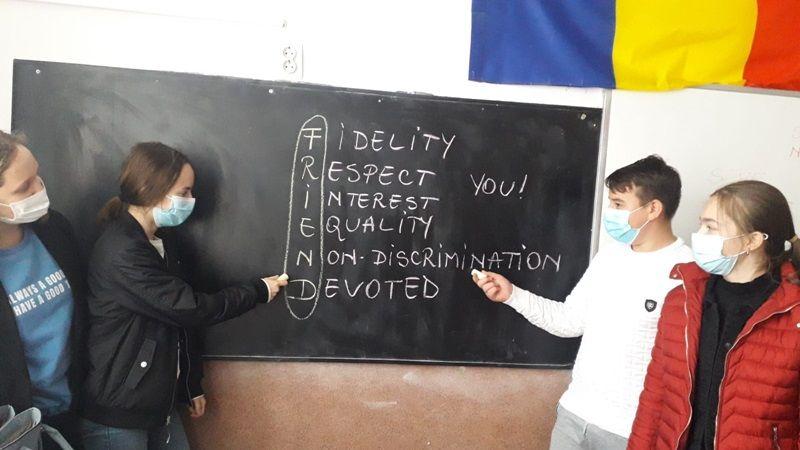 FIDELITY
RESPECT
YOU!
INTEREST
EQUALITY
NON-DISCRIMINATION
DEVOTED
ALWAYS A GOOD
HAVE A GOOD